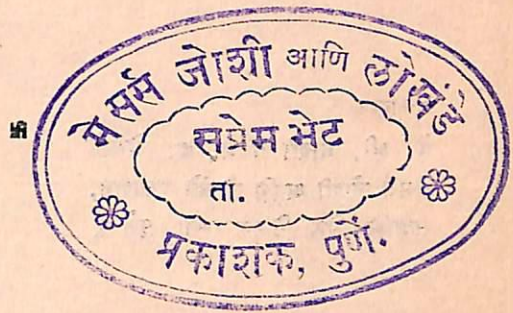 मेसर्स जोशी आणि लोखंडे
सप्रेम भेट
ता.
प्रकाशक, पुणें.